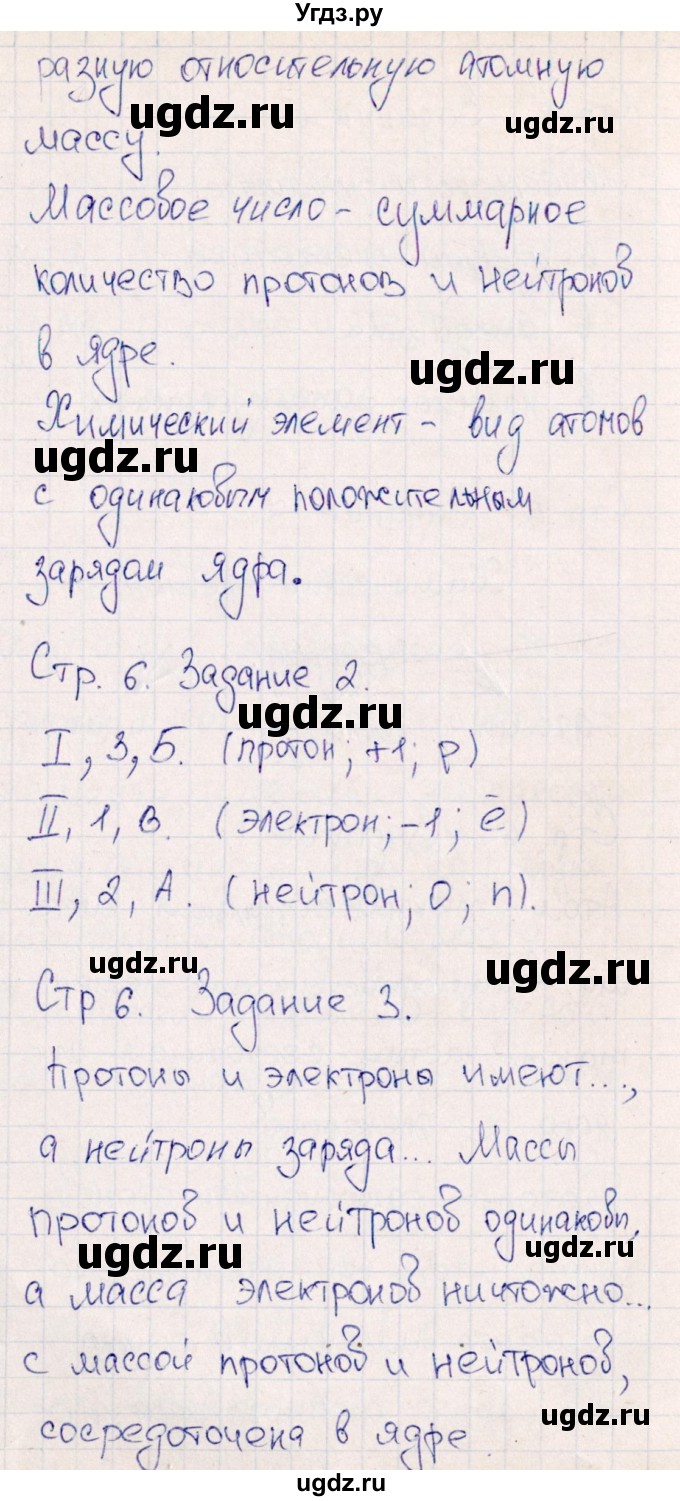 Угдз.ру
разную относительную атомную
ugdz.ru
ugdz.ru
массу.
Массовое число - суммарное
количество протонов и нейтронов
в ядре.
ugdz.ru
Химический элемент - вид атомов
ugdz.ru
с одинаковым положительным
зарядом ядра.
Стр. 6. Задание 2.
ugdz.ru
I, 3, Б. (протон; +1; p)
II, 1, В. (электрон; -1; ē)
III, 2, А. (нейтрон; 0; n).
ugdz.ru
ugdz.ru
Стр 6. Задание 3.
Протоны и электроны имеют...,
а нейтроны заряда... Массы
протонов и нейтронов одинаковы,
ugdz.ru
ugdz.ru
а масса электронов ничтожно...
с массой протонов и нейтронов,
ugdz.ru
сосредоточена в ядре
ugdz.ru